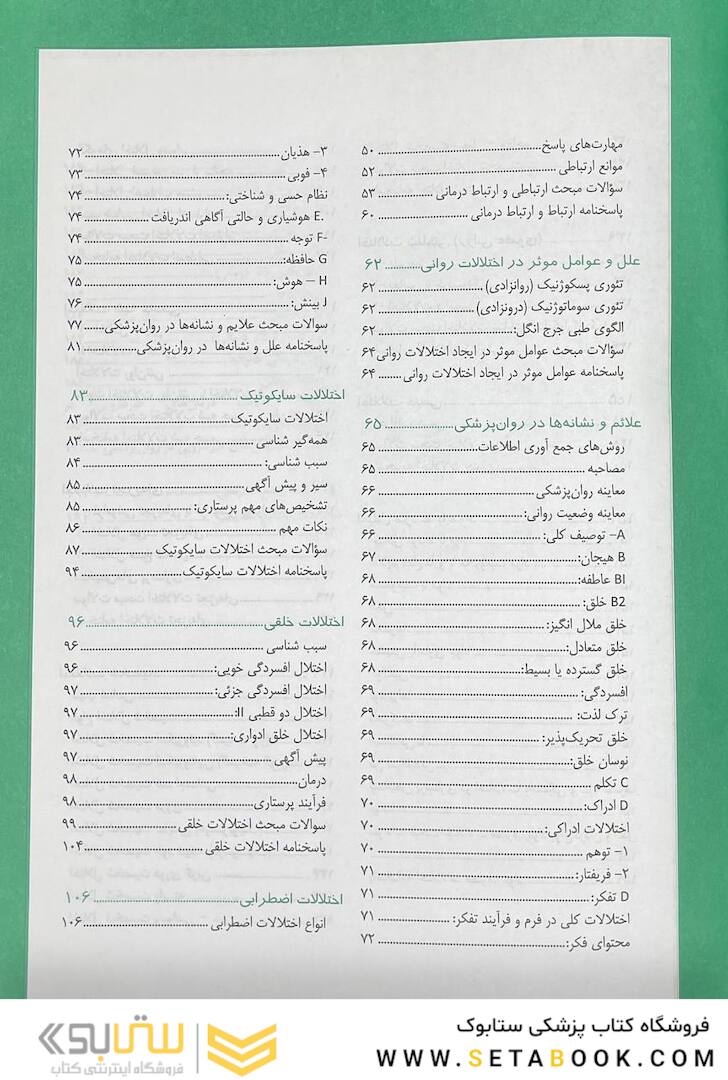 مهارت‌های پاسخ ..... ۵۰
موانع ارتباطی ..... ۵۲
سؤالات مبحث ارتباطی و ارتباط درمانی ..... ۵۳
پاسخنامه ارتباط و ارتباط درمانی ..... ۶۰
علل و عوامل موثر در اختلالات روانی ..... ۶۲
تئوری پسکوژنیک (روانزادی) ..... ۶۲
تئوری سوماتوژنیک (درونزادی) ..... ۶۲
الگوی طبی جرج انگل: ..... ۶۲
سؤالات مبحث عوامل موثر در ایجاد اختلالات روانی ۶۴
پاسخنامه عوامل موثر در ایجاد اختلالات روانی ..... ۶۴
علائم و نشانه‌ها در روان‌پزشکی ..... ۶۵
روش‌های جمع آوری اطلاعات ..... ۶۵
مصاحبه ..... ۶۵
معاینه روان‌پزشکی ..... ۶۶
معاینه وضعیت روانی: ..... ۶۶
A- توصیف کلی: ..... ۶۶
B هیجان: ..... ۶۷
BI عاطفه: ..... ۶۸
B2 خلق: ..... ۶۸
خلق ملال انگیز: ..... ۶۸
خلق متعادل: ..... ۶۸
خلق گسترده یا بسیط: ..... ۶۸
افسردگی: ..... ۶۹
ترک لذت: ..... ۶۹
خلق تحریک‌پذیر: ..... ۶۹
نوسان خلق: ..... ۶۹
C تکلم ..... ۶۹
D ادراک: ..... ۷۰
اختلالات ادراکی: ..... ۷۰
۱- توهم ..... ۷۰
۲- فریفتار: ..... ۷۱
D تفکر: ..... ۷۱
اختلالات کلی در فرم و فرآیند تفکر: ..... ۷۱
محتوای فکر: ..... ۷۲
۳- هذیان ..... ۷۲
۴- فوبی ..... ۷۳
نظام حسی و شناختی: ..... ۷۴
E. هوشیاری و حالتی آگاهی اندریافت ..... ۷۴
F- توجه ..... ۷۴
G حافظه: ..... ۷۵
H – هوش: ..... ۷۵
J بینش: ..... ۷۶
سوالات مبحث علایم و نشانه‌ها در روان‌پزشکی ..... ۷۷
پاسخنامه علل و نشانه‌ها در روان‌پزشکی ..... ۸۱
اختلالات سایکوتیک ..... ۸۳
اختلالات سایکوتیک ..... ۸۳
همه‌گیر شناسی ..... ۸۳
سبب شناسی: ..... ۸۴
سیر و پیش آگهی ..... ۸۵
تشخیص‌های مهم پرستاری: ..... ۸۵
نکات مهم ..... ۸۶
سؤالات مبحث اختلالات سایکوتیک ..... ۸۷
پاسخنامه اختلالات سایکوتیک ..... ۹۴
اختلالات خلقی ..... ۹۶
سبب شناسی ..... ۹۶
اختلال افسردگی خویی: ..... ۹۶
اختلال افسردگی جزئی: ..... ۹۷
اختلال دو قطبی II: ..... ۹۷
اختلال خلق ادواری: ..... ۹۷
پیش آگهی ..... ۹۷
درمان ..... ۹۸
فرآیند پرستاری ..... ۹۸
سوالات مبحث اختلالات خلقی ..... ۹۹
پاسخنامه اختلالات خلقی ..... ۱۰۴
اختلالات اضطرابی ..... ۱۰۶
انواع اختلالات اضطرابی ..... ۱۰۶
فروشگاه کتاب پزشکی ستابوک
WWW.SETABOOK.COM
ستابوک
فروشگاه اینترنتی کتاب